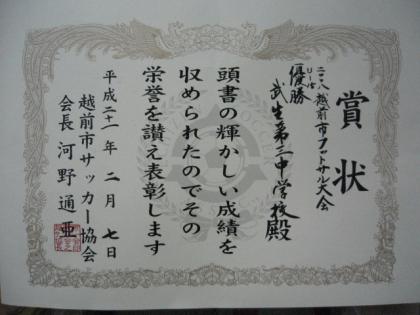 賞状
二〇〇八越前市フットサル大会
U-15
優勝
武生第三中学校殿
頭書の輝かしい成績を
収められたのでその
栄誉を讃え表彰します
平成二十一年二月七日
越前市サッカー協会
会長 河野通亜